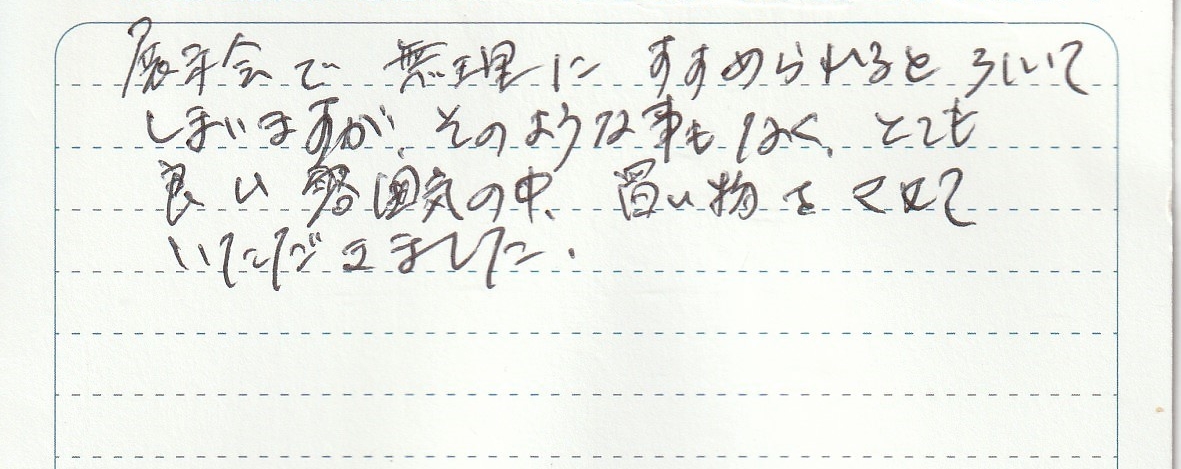 展示会で 無理に すすめられると ういて
しまいますが、そのような事もなく、とても
良い 雰囲気の中、買い物を させて
いただきました.